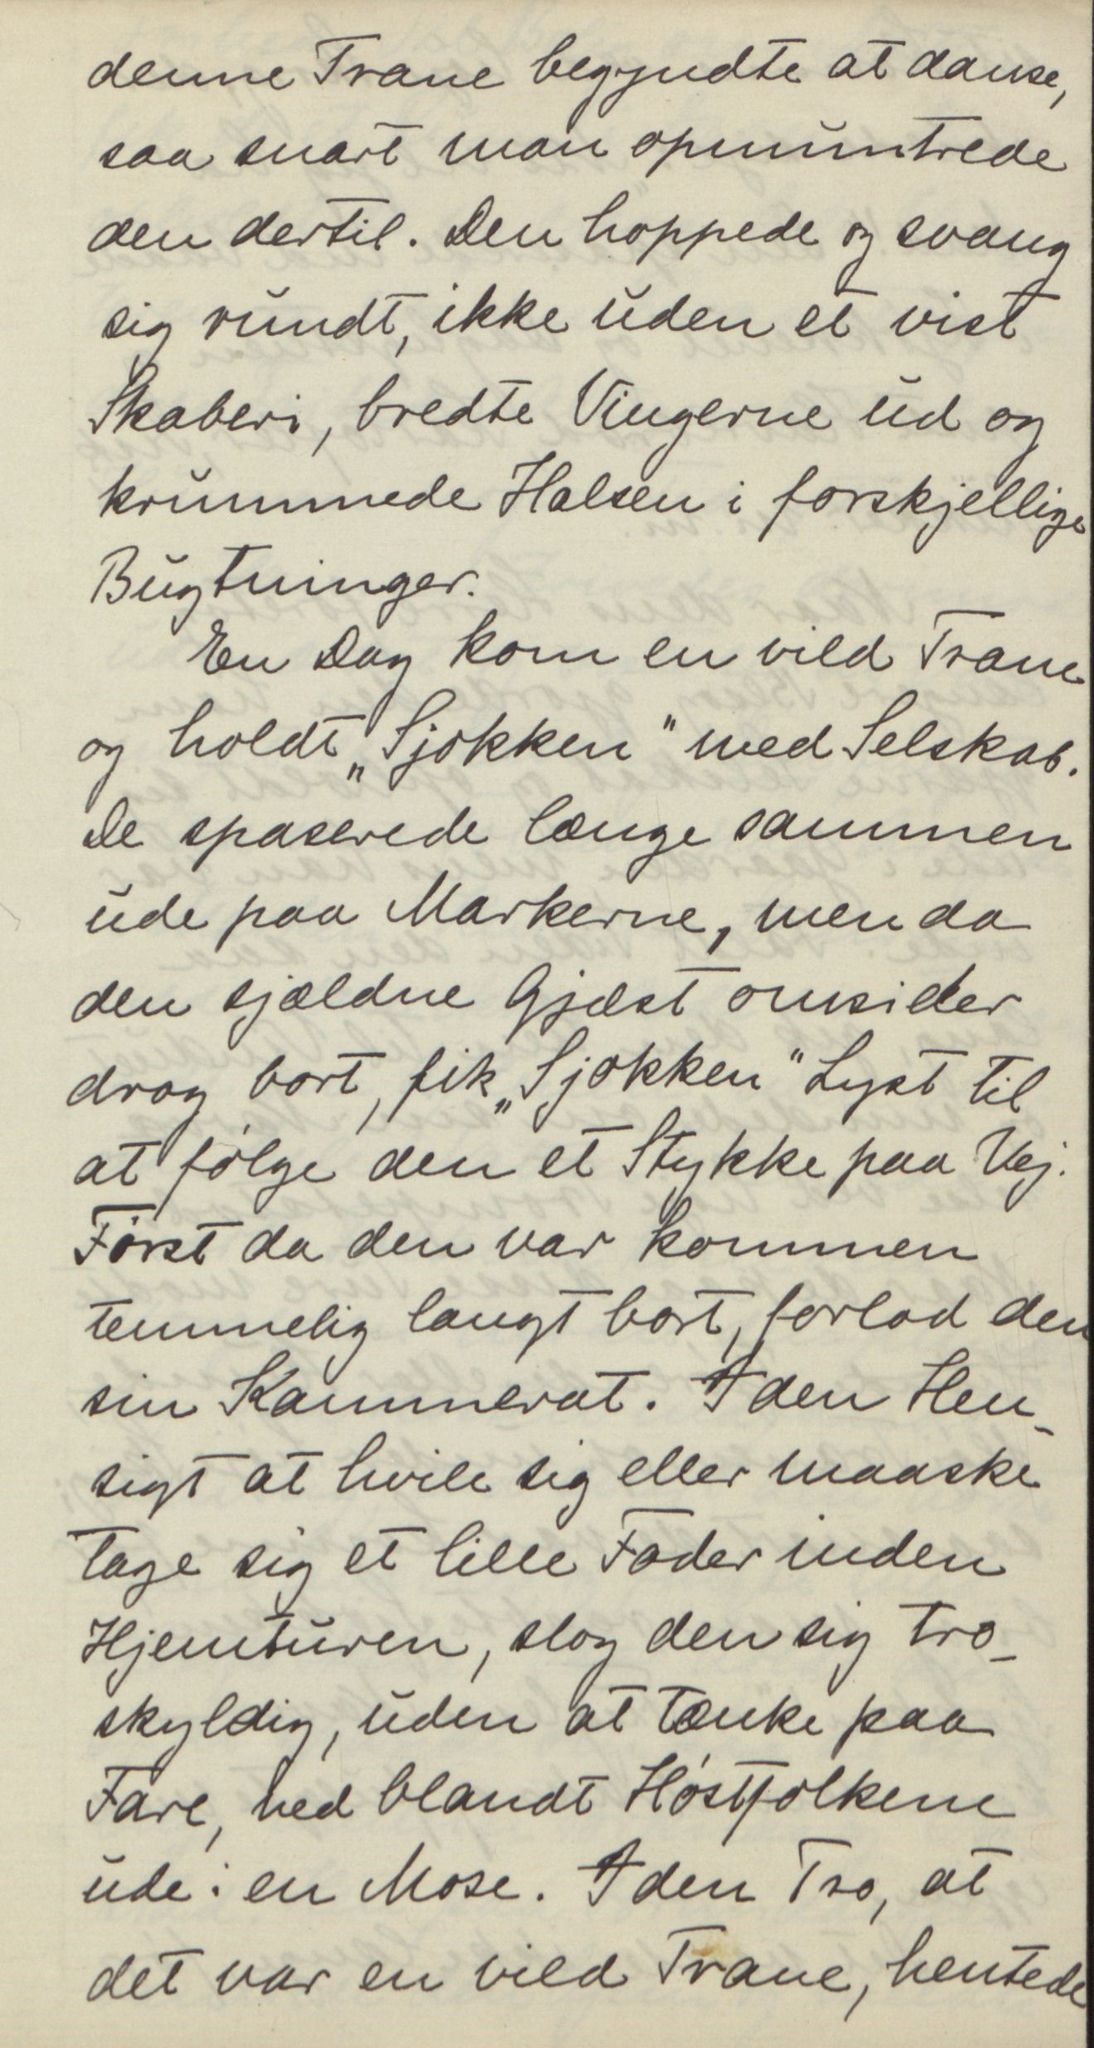 denne Trane begyndte at danse,
saa snart man opmuntrede
den dertil. Den hoppede og svang
sig rundt, ikke uden et vist
Skaberi, bredte Vingerne ud og
krummede Halsen i forskjellige
Bugtninger.
En Dag kom en vild Trane
og holdt „Sjokken" med Selskab.
De spaserede længe sammen
ude paa Markerne, men da
den sjældne Gjæst omsider
drog bort, fik „Sjokken" Lyst til
at følge den et Stykke paa Vej.
Først da den var kommen
temmelig langt bort, forlod den
sin Kammerat. I den Hen-
sigt at hvile sig eller maaske
tage sig et lille Foder inden
Hjemturen, slog den sig tro-
skyldig, uden at tænke paa
Fare, ned blandt Høstfolkene
ude i en Mose. I den Tro, at
det var en vild Trane, hentede